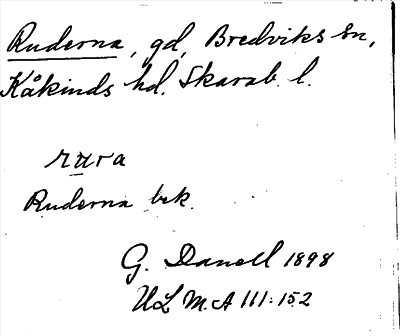 Ruderna, gd, Bredviks sn,
Kåkinds hd. Skarab. l.
rura
Ruderna bek.
G. Danell 1898
ULMA 111:152